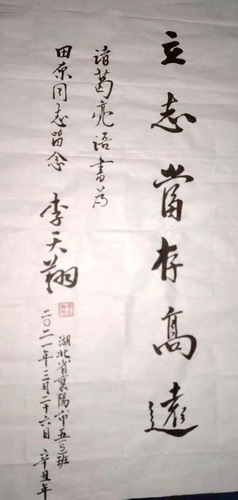 立志當存高遠
諸葛亮語書為
田原同志留念
李天翔
湖北省襄陽市五三班
二〇二一年三月二十六日 辛丑年